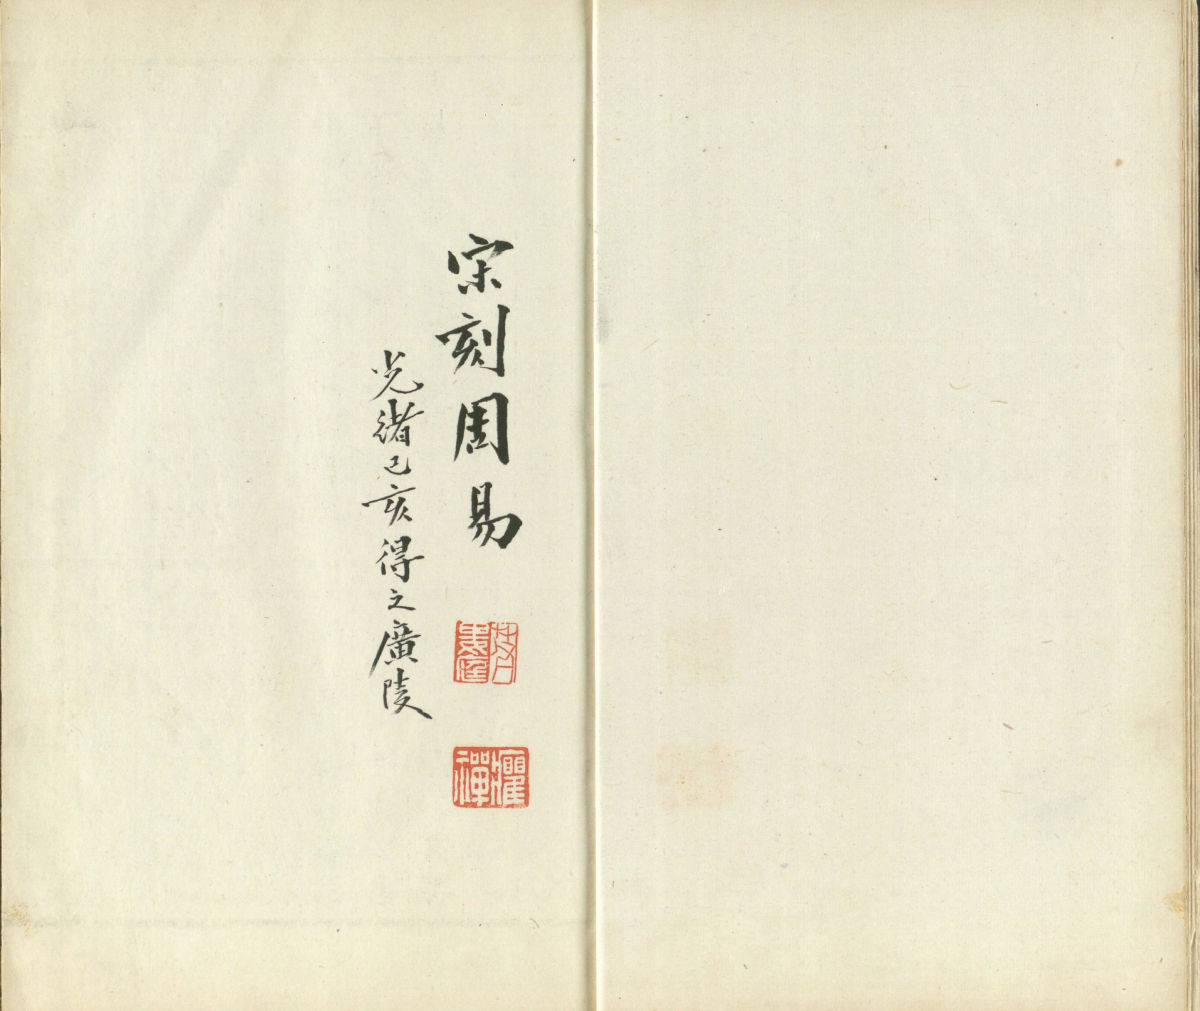 宋刻周易
光緒己亥得之廣陵
臞禪